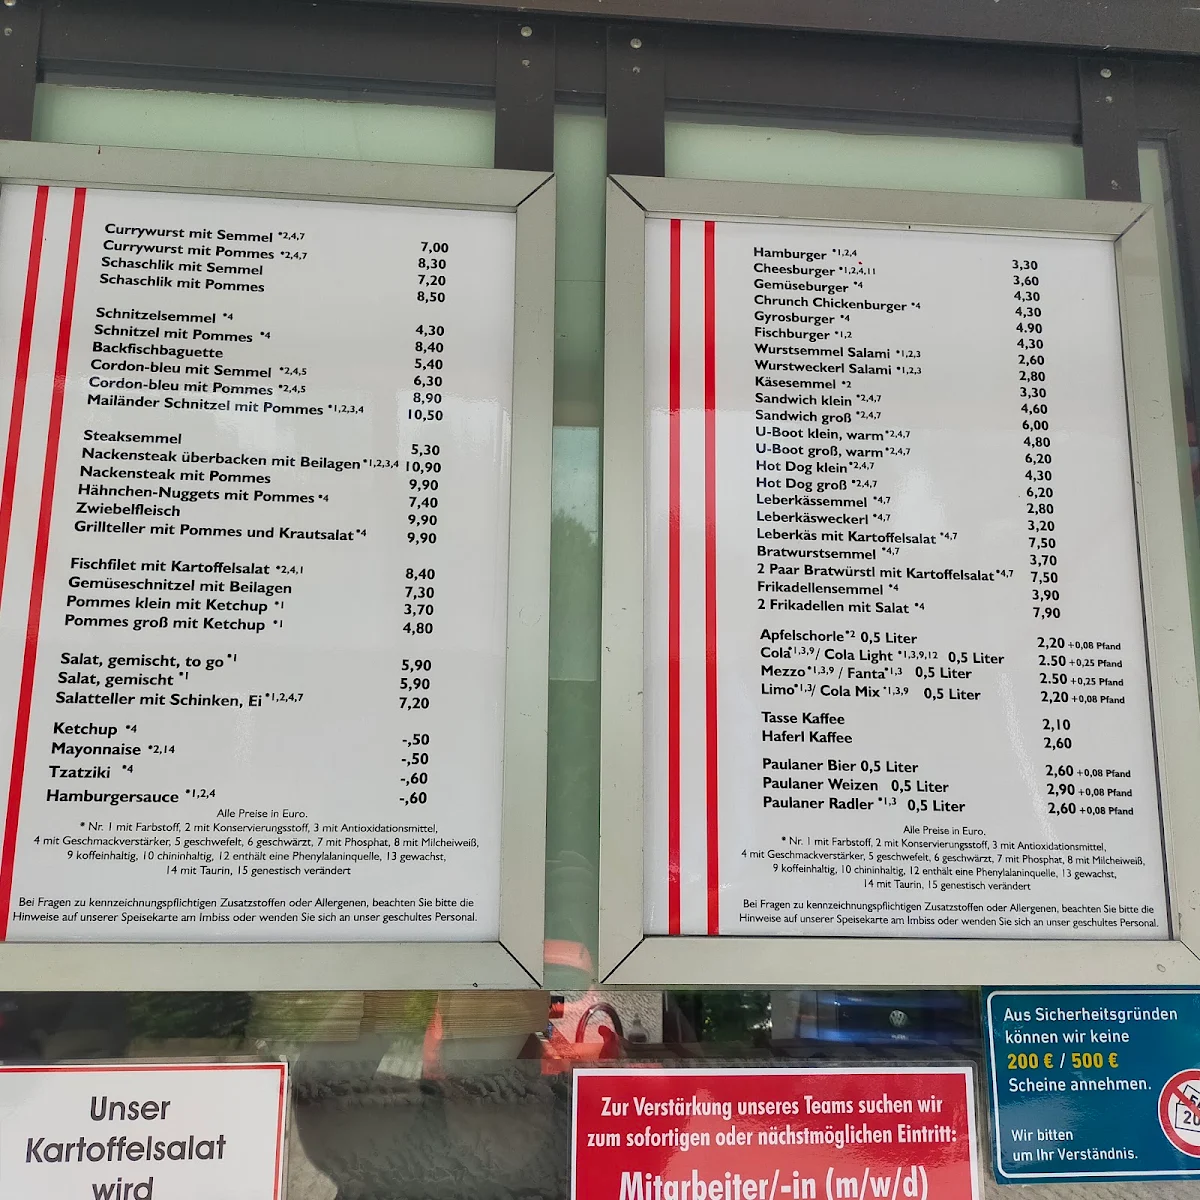 Currywurst mit Semmel *2,4,7 7,00
Currywurst mit Pommes *2,4,7 8,30
Schaschlik mit Semmel 7,20
Schaschlik mit Pommes 8,50
Schnitzelsemmel *4 4,30
Schnitzel mit Pommes *4 8,40
Backfischbaguette 5,40
Cordon-bleu mit Semmel *2,4,5 6,30
Cordon-bleu mit Pommes *2,4,5 8,90
Mailänder Schnitzel mit Pommes *1,2,3,4 10,50
Steaksemmel 5,30
Nackensteak überbacken mit Beilagen *1,2,3,4 10,90
Nackensteak mit Pommes 9,90
Hähnchen-Nuggets mit Pommes *4 7,40
Zwiebelfleisch 9,90
Grillteller mit Pommes und Krautsalat *4 9,90
Fischfilet mit Kartoffelsalat *2,4,1 8,40
Gemüseschnitzel mit Beilagen 7,30
Pommes klein mit Ketchup *1 3,70
Pommes groß mit Ketchup *1 4,80
Salat, gemischt, to go *1 5,90
Salat, gemischt *1 5,90
Salatteller mit Schinken, Ei *1,2,4,7 7,20
Ketchup *4 -,50
Mayonnaise *2,14 -,50
Tzatziki *4 -,60
Hamburgersauce *1,2,4 -,60
Alle Preise in Euro.
* Nr. 1 mit Farbstoff, 2 mit Konservierungsstoff, 3 mit Antioxidationsmittel,
4 mit Geschmackverstärker, 5 geschwefelt, 6 geschwärzt, 7 mit Phosphat, 8 mit Milcheiweiß,
9 koffeinhaltig, 10 chininhaltig, 12 enthält eine Phenylalaninquelle, 13 gewachst,
14 mit Taurin, 15 genestisch verändert
Bei Fragen zu kennzeichnungspflichtigen Zusatzstoffen oder Allergenen, beachten Sie bitte die
Hinweise auf unserer Speisekarte am Imbiss oder wenden Sie sich an unser geschultes Personal.
Hamburger *1,2,4 3,30
Cheesburger *1,2,4,11 3,60
Gemüseburger *4 4,30
Chrunch Chickenburger *4 4,30
Gyrosburger *4 4.90
Fischburger *1,2 4,30
Wurstsemmel Salami *1,2,3 2,60
Wurstweckerl Salami *1,2,3 2,80
Käsesemmel *2 3,30
Sandwich klein *2,4,7 4,60
Sandwich groß *2,4,7 6,00
U-Boot klein, warm *2,4,7 4,80
U-Boot groß, warm *2,4,7 6,20
Hot Dog klein *2,4,7 4,30
Hot Dog groß *2,4,7 6,20
Leberkässemmel *4,7 2,80
Leberkäsweckerl *4,7 3,20
Leberkäs mit Kartoffelsalat *4,7 7,50
Bratwurstsemmel *4,7 3,70
2 Paar Bratwürstl mit Kartoffelsalat *4,7 7,50
Frikadellensemmel *4 3,90
2 Frikadellen mit Salat *4 7,90
Apfelschorle *2 0,5 Liter 2,20 +0,08 Pfand
Cola *1,3,9 / Cola Light *1,3,9,12 0,5 Liter 2.50 +0,25 Pfand
Mezzo *1,3,9 / Fanta *1,3 0,5 Liter 2.50 +0,25 Pfand
Limo *1,3 / Cola Mix *1,3,9 0,5 Liter 2,20 +0,08 Pfand
Tasse Kaffee 2,10
Haferl Kaffee 2,60
Paulaner Bier 0,5 Liter 2,60 +0,08 Pfand
Paulaner Weizen 0,5 Liter 2,90 +0,08 Pfand
Paulaner Radler *1,3 0,5 Liter 2,60 +0,08 Pfand
Alle Preise in Euro.
* Nr. 1 mit Farbstoff, 2 mit Konservierungsstoff, 3 mit Antioxidationsmittel,
4 mit Geschmackverstärker, 5 geschwefelt, 6 geschwärzt, 7 mit Phosphat, 8 mit Milcheiweiß,
9 koffeinhaltig, 10 chininhaltig, 12 enthält eine Phenylalaninquelle, 13 gewachst,
14 mit Taurin, 15 genestisch verändert
Bei Fragen zu kennzeichnungspflichtigen Zusatzstoffen oder Allergenen, beachten Sie bitte die
Hinweise auf unserer Speisekarte am Imbiss oder wenden Sie sich an unser geschultes Personal.
Unser
Kartoffelsalat
wird
Zur Verstärkung unseres Teams suchen wir
zum sofortigen oder nächstmöglichen Eintritt:
Mitarbeiter/-in (m/w/d)
Aus Sicherheitsgründen
können wir keine
200 € / 500 €
Scheine annehmen.
Wir bitten
um Ihr Verständnis.